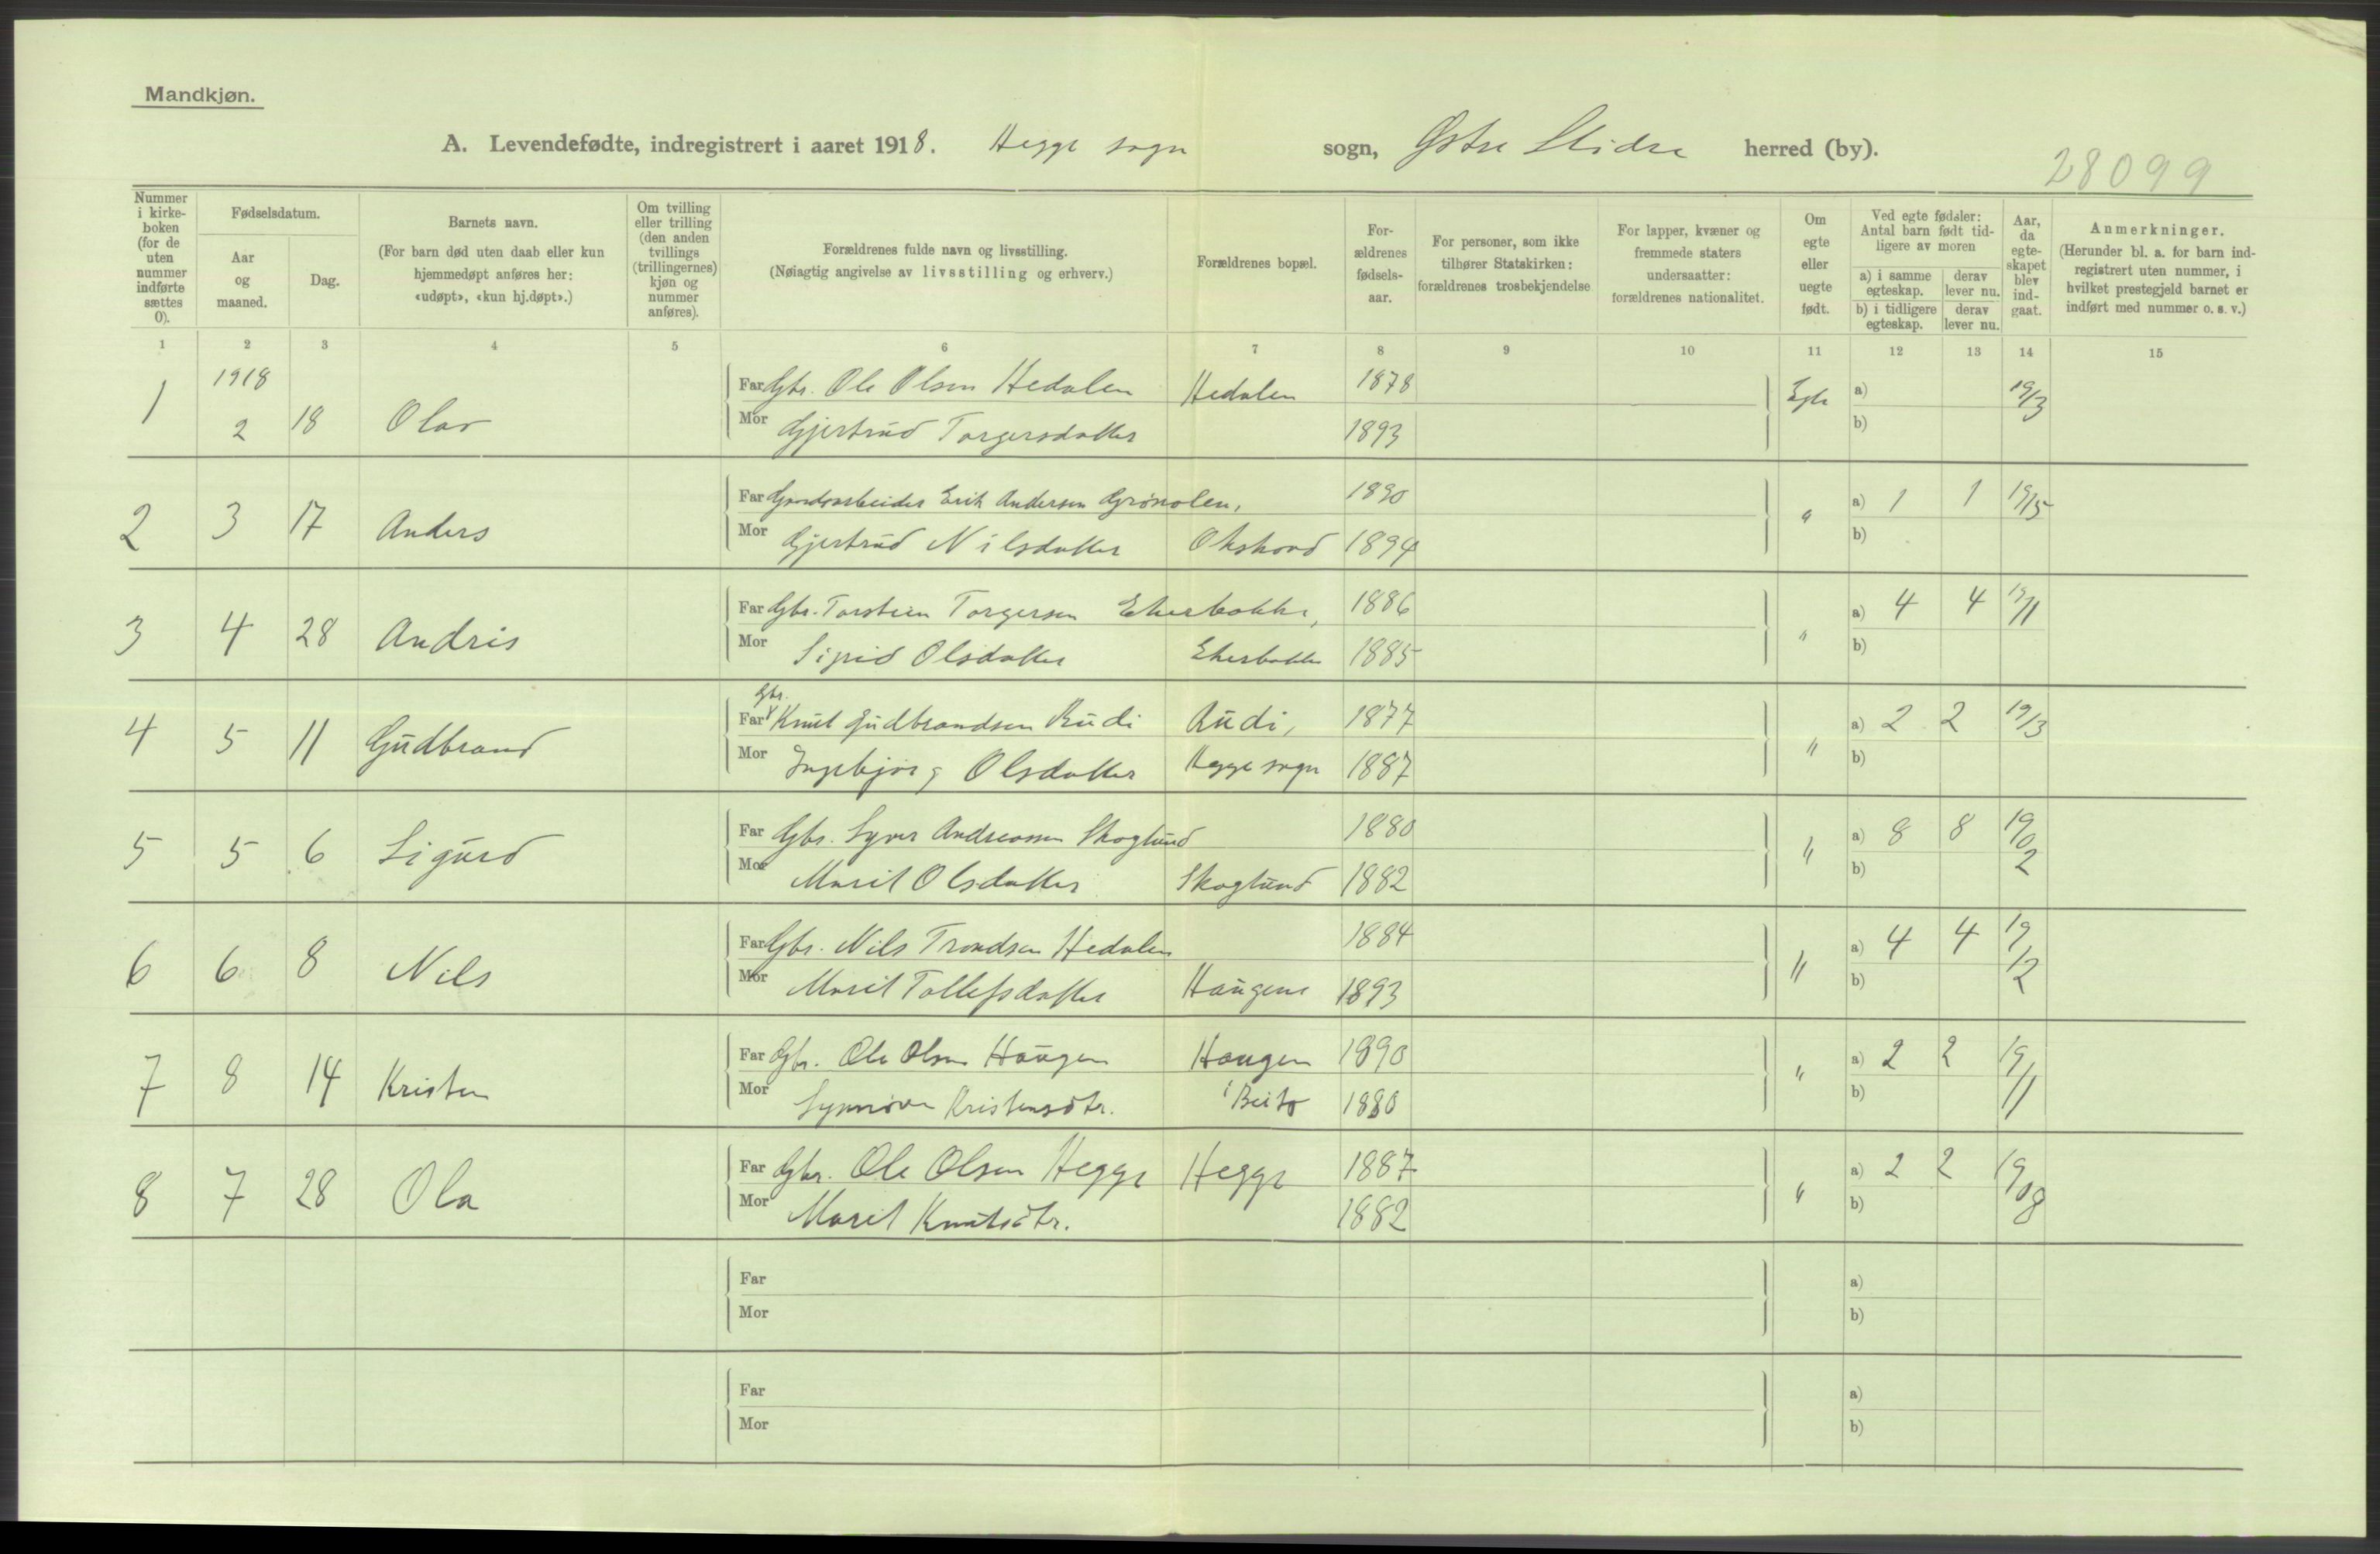 Mandkjøn.
A. Levendefødte, indregistrert i aaret 1918. Hegge sogn sogn, Østre Slidre herred (by).
28099
Nummer i kirke-boken (for de uten nummer indførte sættes 0).
Fødselsdatum.
Aar og maaned.
Dag.
Barnets navn.
(For barn død uten daab eller kun hjemmedøpt anføres her: «udøpt», «kun hj.døpt».)
Om tvilling eller trilling (den anden tvillings (trillingernes) kjøn og nummer anføres).
Forældrenes fulde navn og livsstilling.
(Nøiagtig angivelse av livsstilling og erhverv.)
Forældrenes bopæl.
For-ældrenes fødsels-aar.
For personer, som ikke tilhører Statskirken: forældrenes trosbekjendelse
For lapper, kvæner og fremmede staters undersaatter: forældrenes nationalitet.
Om egte eller uegte født.
Ved egte fødsler: Antal barn født tid-ligere av moren
a) i samme egteskap. derav lever nu.
b) i tidligere egteskap. derav lever nu.
Aar, da egte-skapet blev ind-gaat.
Anmerkninger.
(Herunder bl. a. for barn ind-registrert uten nummer, i hvilket prestegjeld barnet er indført med nummer o. s. v.)
1 2 3 4 5 6 7 8 9 10 11 12 13 14 15
1918
1 2 18 Olav Far Gbr. Ole Olsen Hedalen Hedalen 1878 Egte a) 19/3
Mor Gjertrud Torgersdatter 1893 b)
2 3 17 Anders Far Gaardsarbeider Erik Andersen Grønolen, 1890 " a) 1 1 19/15
Mor Gjertrud Nilsdatter Okshovd 1894 b)
3 4 28 Andris Far Gbr. Torstein Torgersen Ekerbakke, 1886 " a) 4 4 19/11
Mor Sigrid Olsdatter Ekerbakke 1885 b)
4 5 11 Gudbrand Far Gbr. Knut Gudbrandsen Rudi Rudi, 1877 " a) 2 2 19/13
Mor Ingebjørg Olsdatter Hegge sogn 1887 b)
5 5 6 Sigurd Far Gbr. Syver Andreassen Skoglund 1880 " a) 8 8 19/02
Mor Marit Olsdatter Skoglund 1882 b)
6 6 8 Nils Far Gbr. Nils Trondsen Hedalen 1884 " a) 4 4 19/12
Mor Marit Tollefsdatter Haugene 1893 b)
7 8 14 Kristen Far Gbr. Ole Olsen Haugen Haugen 1890 " a) 2 2 19/11
Mor Synnøve Kristensdtr. i Beito 1880 b)
8 7 28 Ola Far Gbr. Ole Olsen Hegge Hegge 1887 " a) 2 2 19/08
Mor Marit Knutsdtr. 1882 b)
Far a)
Mor b)
Far a)
Mor b)